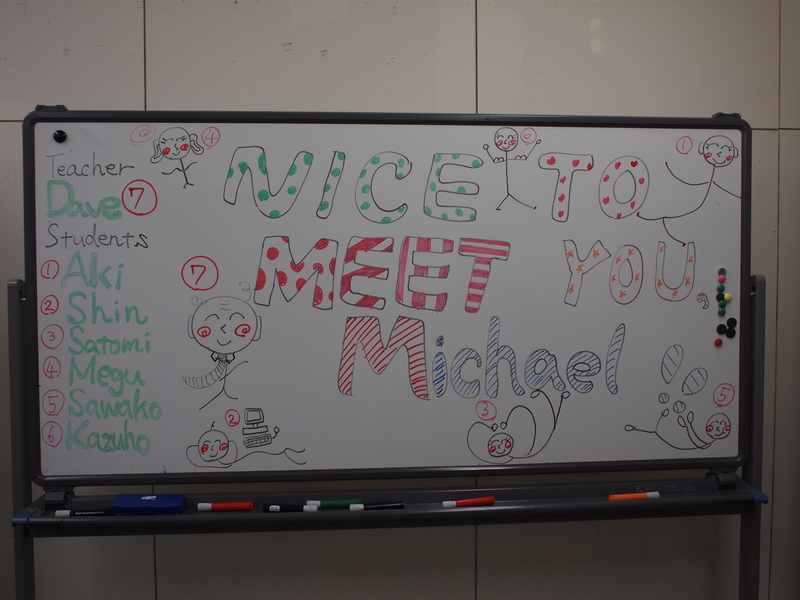 Teacher
Dave ⑦
Students
① Aki
② Shin
③ Satomi
④ Megu
⑤ Sawako
⑥ Kazuho
④
⑥
①
NICE TO
MEET YOU
Michael
⑦
②
③
⑤